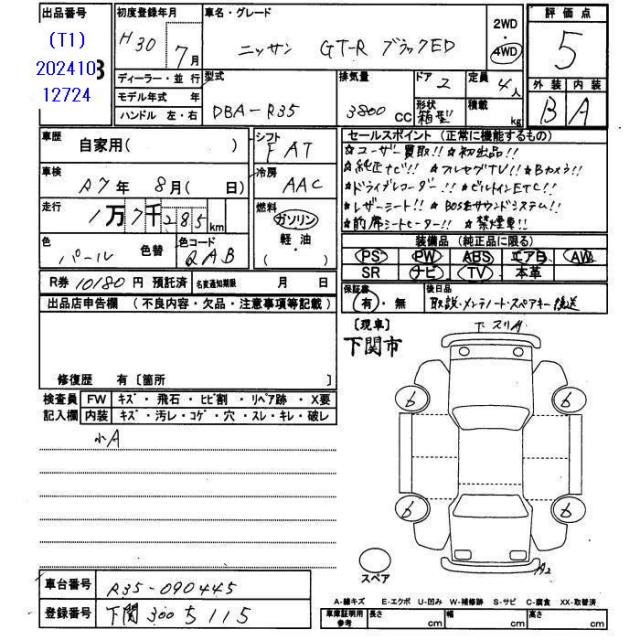 出品番号 初度登録年月 車名・グレード 2WD 評価点
(T1) H30 7月 ニッサン GT-R ブラックED 4WD 5
202410 3
12724
ディーラー・並行 型式 排気量 ドア 2 定員 4人 外装 内装
モデル年式 年 DBA-R35 3800 CC 形状 箱型 積載 kg B A
ハンドル 左・右
車歴 自家用( ) シフト FAT セールスポイント (正常に機能するもの)
☆ユーザー買取!! ☆初出品!!
車検 R7年 8月( 日) 冷房 AAC ☆純正ナビ!! ☆フルセグTV!! ☆Bカメラ!!
☆ドライブレコーダー!! ☆ビルトインETC!!
走行 1万7千285km 燃料 ガソリン 軽油 ( ) ☆レザーシート!! ☆BOSEサウンドシステム!!
☆前席シートヒーター!! ☆禁煙車!!
色 パール 色替 色コード QAB 装備品 (純正品に限る)
PS PW ABS エアB AW
SR ナビ TV 本革
R券 10180円 預託済 名変通知期限 月 日 保証書 有・無 後日品 取説・メンテノート・スペアキー 後送
出品店申告欄 (不良内容・欠品・注意事項等記載)
[現車]
下関市
下スリA
修復歴 有[箇所 ]
検査員 FW キズ・飛石・ヒビ割・リペア跡・X要
記入欄 内装 キズ・汚レ・コゲ・穴・スレ・キレ・破レ
小A
6 6
6 6
A2
スペア
車台番号 R35-090445
登録番号 下関 300 5 115
A-線キズ E-エクボ U-凹み W-補修跡 S-サビ C-腐食 XX-取替済
車庫証明用参考 長さ cm 幅 cm 高さ cm